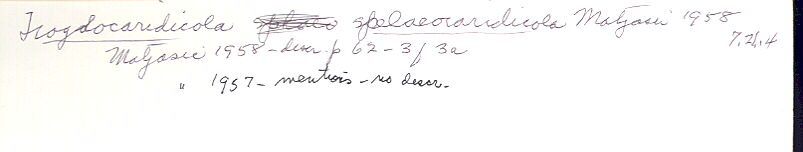 Trogdocaridicola spelaeocaridicola Matjasic 1958
7.21.4
Matjasic 1958 - descr. p 62-3 f 3a
" 1957 - mentions - no descr.